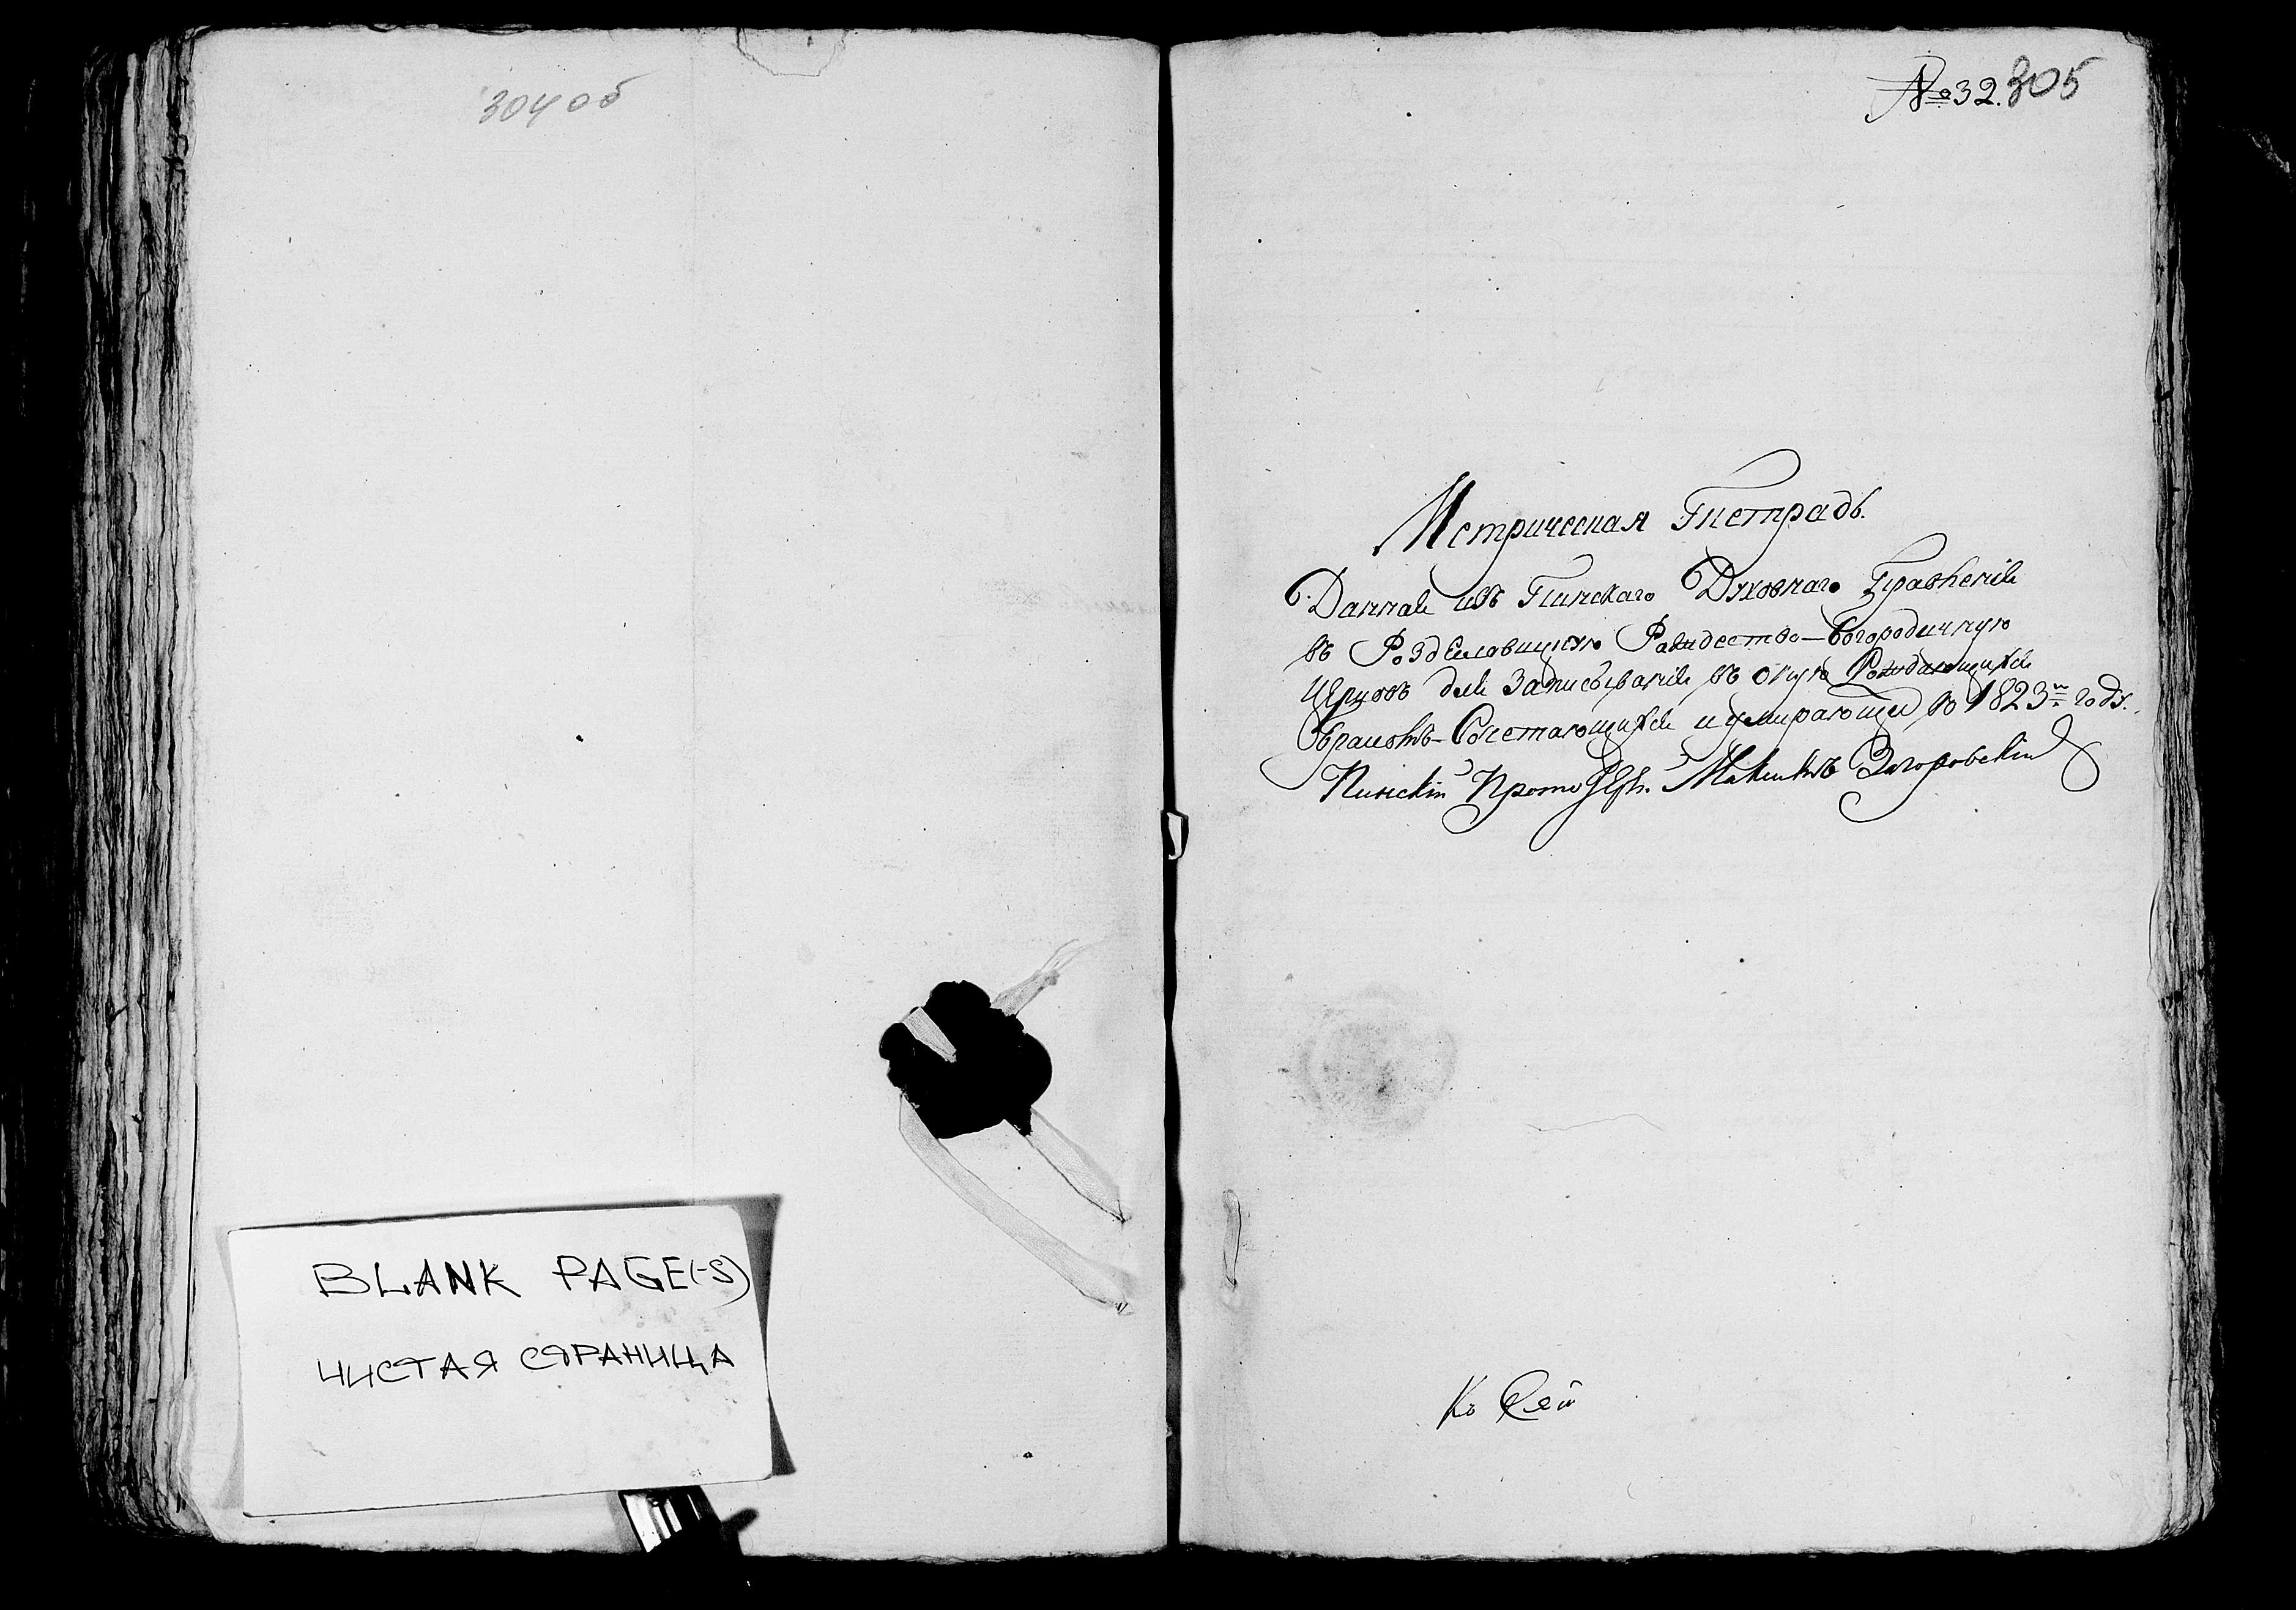 304 об
BLANK PAGE(-S)
ЧИСТАЯ СТРАНИЦА
№ 32. 305
Метрическая Тетрадь.
Данная изъ Пинскаго Духовнаго Правленія
въ Роздѣловицкую Рождество-Богородичную
Церковь для Записыванія въ оную Рождающихся
Бракомъ-Сочетающихся и умирающи въ 1823 м году.
Пинскій Прото Іер. Загоровскій
Къ Сей